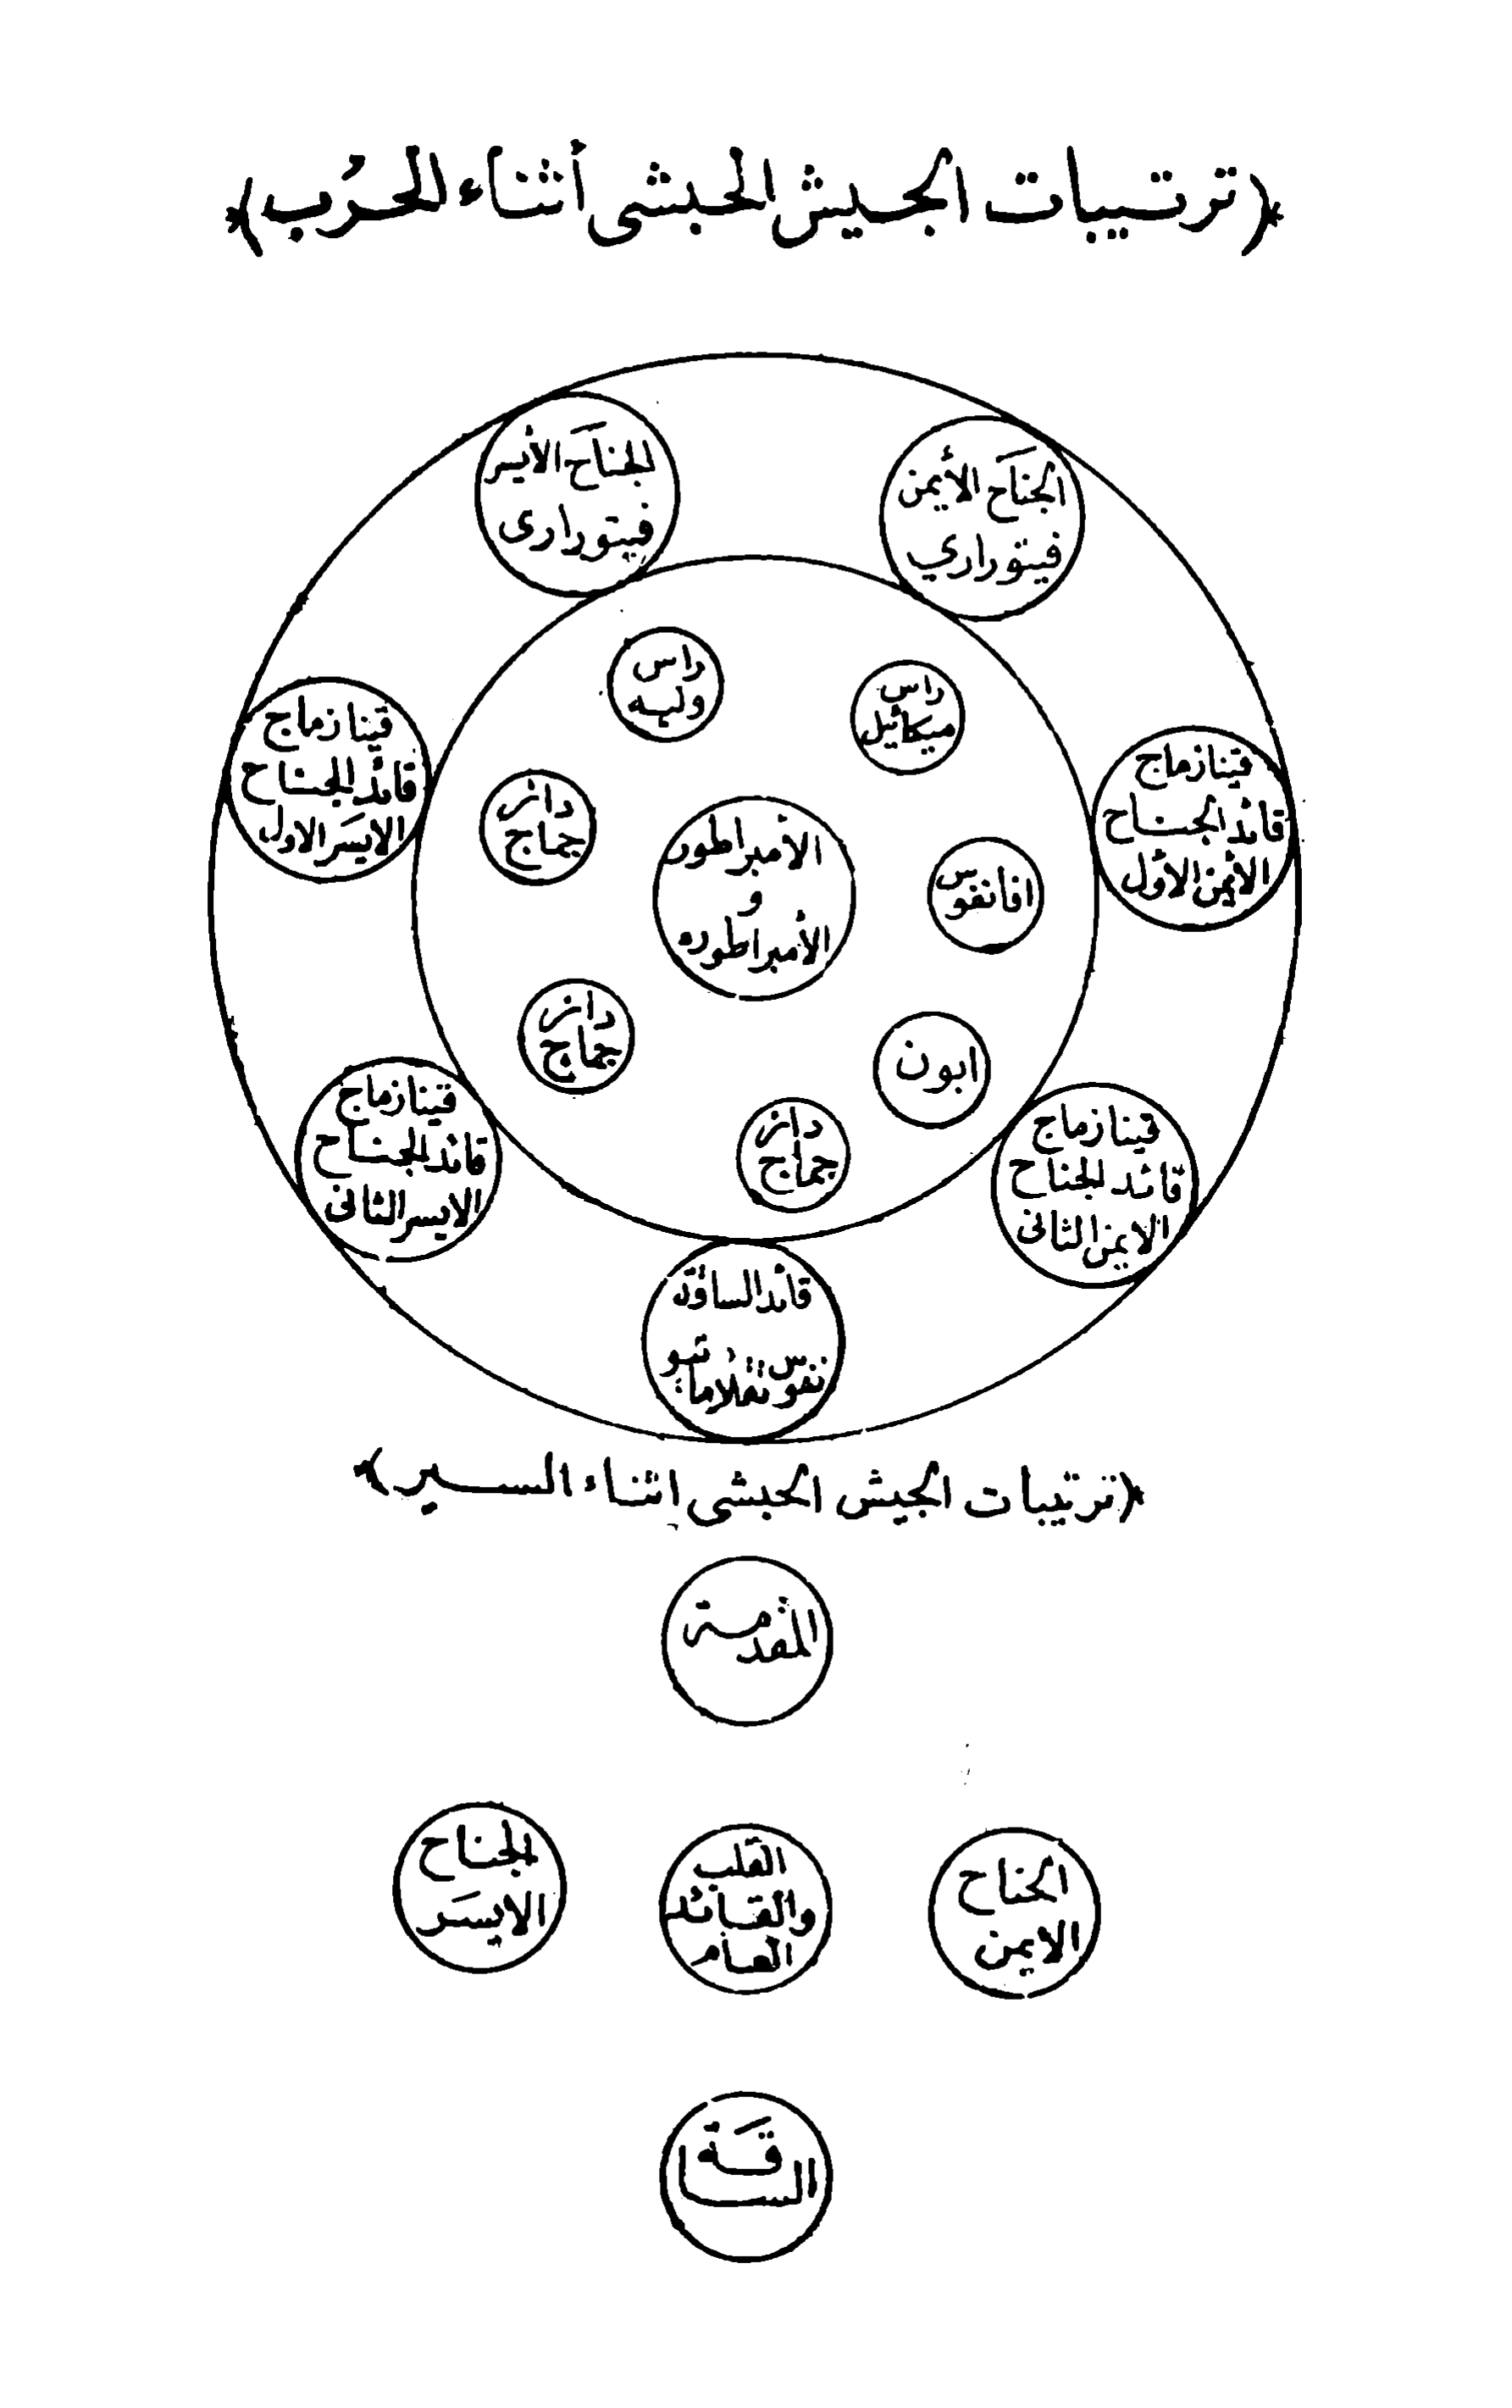 ﴿ترتيبات الجيش الحبشى أثناء الحرُب﴾
الجناَح الأيمن
فيتوراري
الجناَح الأيسر
فيتورارى
راس
ميكائيل
راس
وليه
قينازماج
قائد الجناح
الأيمن الأول
قينازماج
قائد الجناح
الايسَر الاول
دائز
جماج
الأمبراطور
و
الأمبراطوره
افانغوس
دائز
جماج
ابون
دائز
جماج
قينازماج
قائد الجناح
الايمن الثانى
قينازماج
قائد الجناح
الايسر الثانى
قائد الساقة
﴿ترتيبات الجيش الحبشى اثناء السير﴾
المقدمة
الجناح
الايمن
القلب
والقائد
العام
الجناح
الايسَر
الساقَة